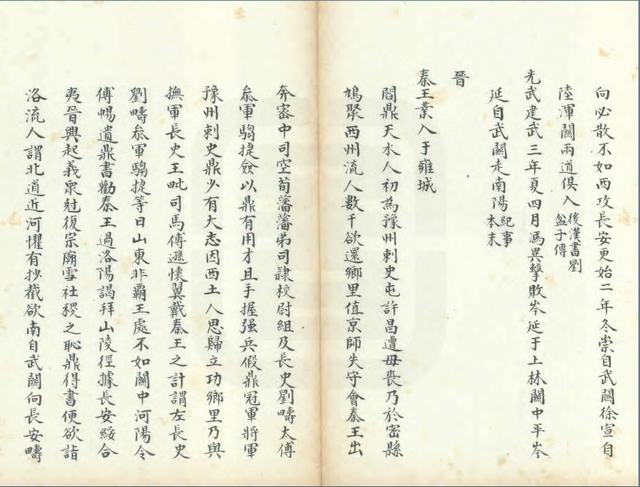 向必散不如西攻長安更始二年冬崇自武關徐宣自
陸渾關兩道俱入後漢書劉盆子傳
光武建武三年夏四月馮異擊敗岑延于上林關中平岑
延自武關走南陽紀事本末
晉
秦王業入于雍城
閻鼎天水人初為豫州刺史屯許昌遭母喪乃於密縣
鳩聚西州流人數千欲還鄉里值京師失守會秦王出
奔密中司空荀藩藩弟司隸校尉組及長史劉疇太傅
叅軍騶捷僉以鼎有用才且手握强兵假鼎冠軍將軍
豫州刺史鼎少有大志因西土人思歸立功鄉里乃與
撫軍長史王毗司馬傅遜懷翼戴秦王之計謂左長史
劉疇叅軍騶捷等曰山東非霸王處不如關中河陽令
傅暢遺鼎書勸秦王過洛陽謁拜山陵徑據長安綏合
夷晉興起義衆尅復宗廟雪社稷之恥鼎得書便欲詣
洛流人謂北道近河懼有抄截欲南自武關向長安疇